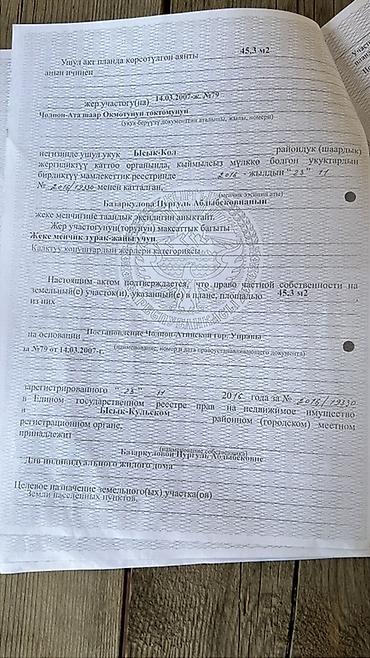 Ушул акт планда көрсөтүлгөн аянты 45,3 м2
анын ичинен
жер участогу(на) 14.03.2007-ж. №79
Чолпон-Ата шаар Окмотунун токтомунун
(укук берүүчү документтин аталышы, жылы, номери)
негизинде ушул укук Ысык-Кол райондук (шаардык)
жергиликтүү каттоо органында, кыймылсыз мүлккө болгон укуктардын
бирдиктүү мамлекеттик реестринде 2016 - жылдын "28" 11
№ 2016/19330 менен катталган,
(менчик ээсинин аты)
Базаркулова Нургуль Абдыбековнанын
жеке менчигине таандык экендигин аныктайт.
Жер участогунун(торунун) максаттык багыты
Жеке менчик турак-жайы учун.
Калктуу конуштардын жерлери категориясы
Настоящим актом подтверждается, что право частной собственности на
земельный(е) участок(и), указанный(е) в плане, площадью 45,3 м2,
из них
на основании Постановление Чолпон-Атинской гор. Управы
за №79 от 14.03.2007-г. (наименование, номер и дата правоустанавливающего документа)
зарегистрированного "28" 11 2016 года за № 2016/19330
в Едином государственном реестре прав на недвижимое имущество
в Ысык-Кульском районном (городском) местном
регистрационном органе,
принадлежит
(наименование собственника)
Базаркуловой Нургуль Абдыбековне
Для индивидуального жилого дома
Целевое назначение земельного(ых) участка(ов)
Земли населенных пунктов.